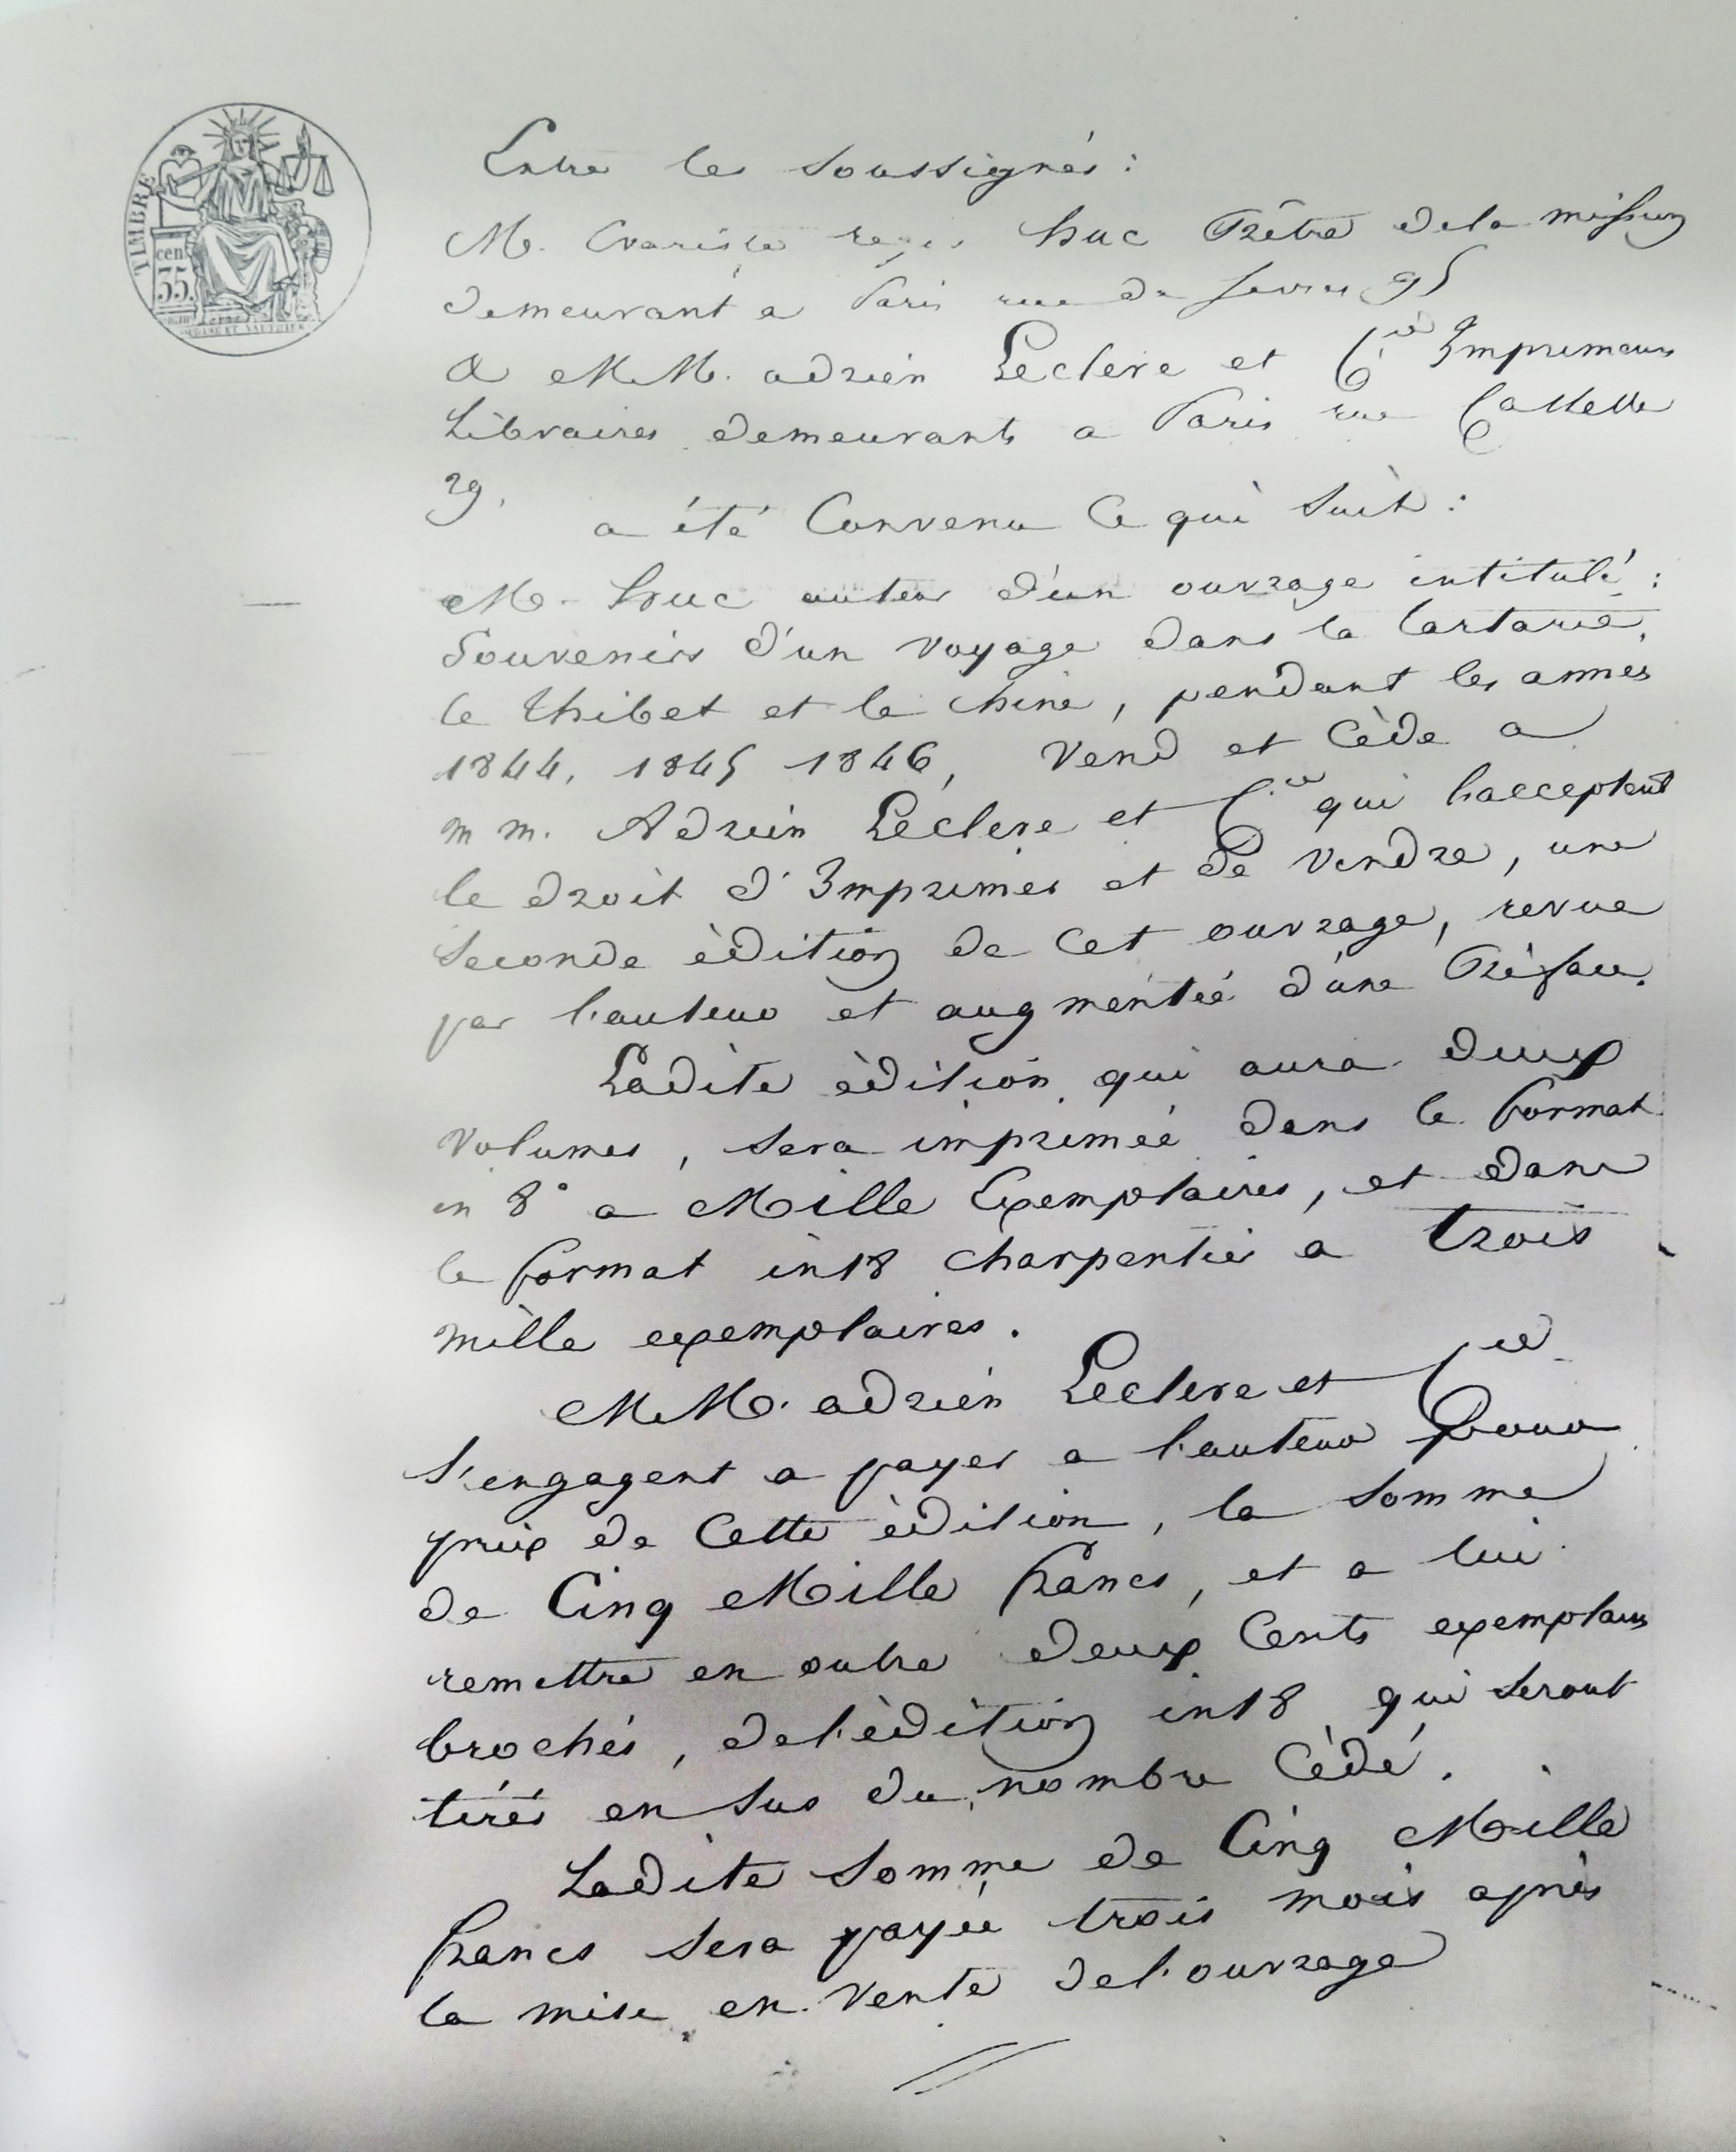 TIMBRE
cen.
35.
Entre les soussignés :
M. Evariste regis huc Prêtre dela mission
demeurant a Paris rue de Sevres 95
& MM. adrien Leclere et Cie Imprimeurs
Libraires demeurants a Paris rue Cassette
29.
a été Convenu Ce qui Suit :
M. huc auteur d'un ouvrage intitulé :
Souvenirs d'un voyage dans la tartarie,
le thibet et la chine, pendant les années
1844, 1845 1846, Vend et Cède a
m m. Adrien Leclere et Cie qui l'acceptent
le droit d'Imprimer et de vendre, une
Seconde èdition de Cet ouvrage, revue
par l'auteur et augmentée d'une Préface.
Ladite èdition qui aura deux
volumes, sera imprimée dans le format
in 8° a Mille Exemplaires, et dans
le format in18 charpentier a trois
mille exemplaires.
MM. adrien Leclere et Cie
S'engagent a payer a l'auteur pour
prix de Cette èdition, la Somme
de Cinq Mille francs, et a lui
remettre en outre deux Cents exemplaires
brochés, del'èdition in18 qui seront
tirés en Sus du nombre Cèdé.
Ladite Somme de Cinq Mille
francs sera payée trois mois après
la mise en vente del'ouvrage